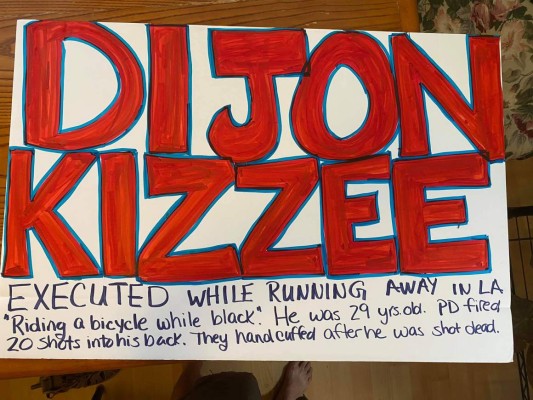 DIJON
KIZZEE
EXECUTED WHILE RUNNING AWAY IN LA
"Riding a bicycle while black". He was 29 yrs.old. PD fired
20 shots into his back. They handcuffed after he was shot dead.